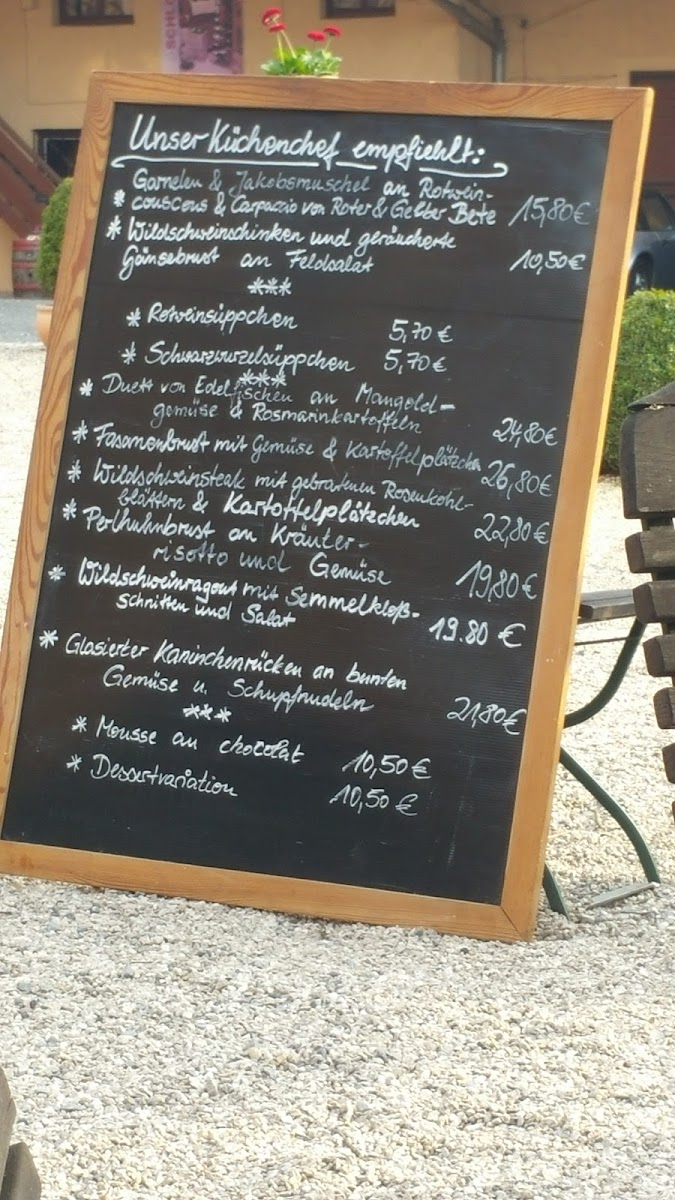 SCHL
Unser Küchenchef empfiehlt:
Garnelen & Jakobsmuschel an Rotwein-
* couscous & Carpaccio von Roter & Gelber Bete 15,80€
* Wildschweinschinken und geräucherte
Gänsebrust an Feldsalat 10,50€
***
* Rotweinsüppchen 5,70 €
* Schwarzwurzelsüppchen 5,70€
***
* Duett von Edelfischen an Mangold-
gemüse & Rosmarinkartoffeln 24,80€
* Fasanenbrust mit Gemüse & Kartoffelplätzchen 26,80€
* Wildschweinsteak mit gebratenen Rosenkohl-
blättern & Kartoffelplätzchen 22,80€
* Perlhuhnbrust an Kräuter-
risotto und Gemüse 19,80€
* Wildschweinragout mit Semmelkloß-
schnitten und Salat 19.80 €
* Glasierter Kaninchenrücken an bunten
Gemüse u. Schupfnudeln 21,80€
***
* Mousse au chocolat 10,50€
* Dessertvariation 10,50 €